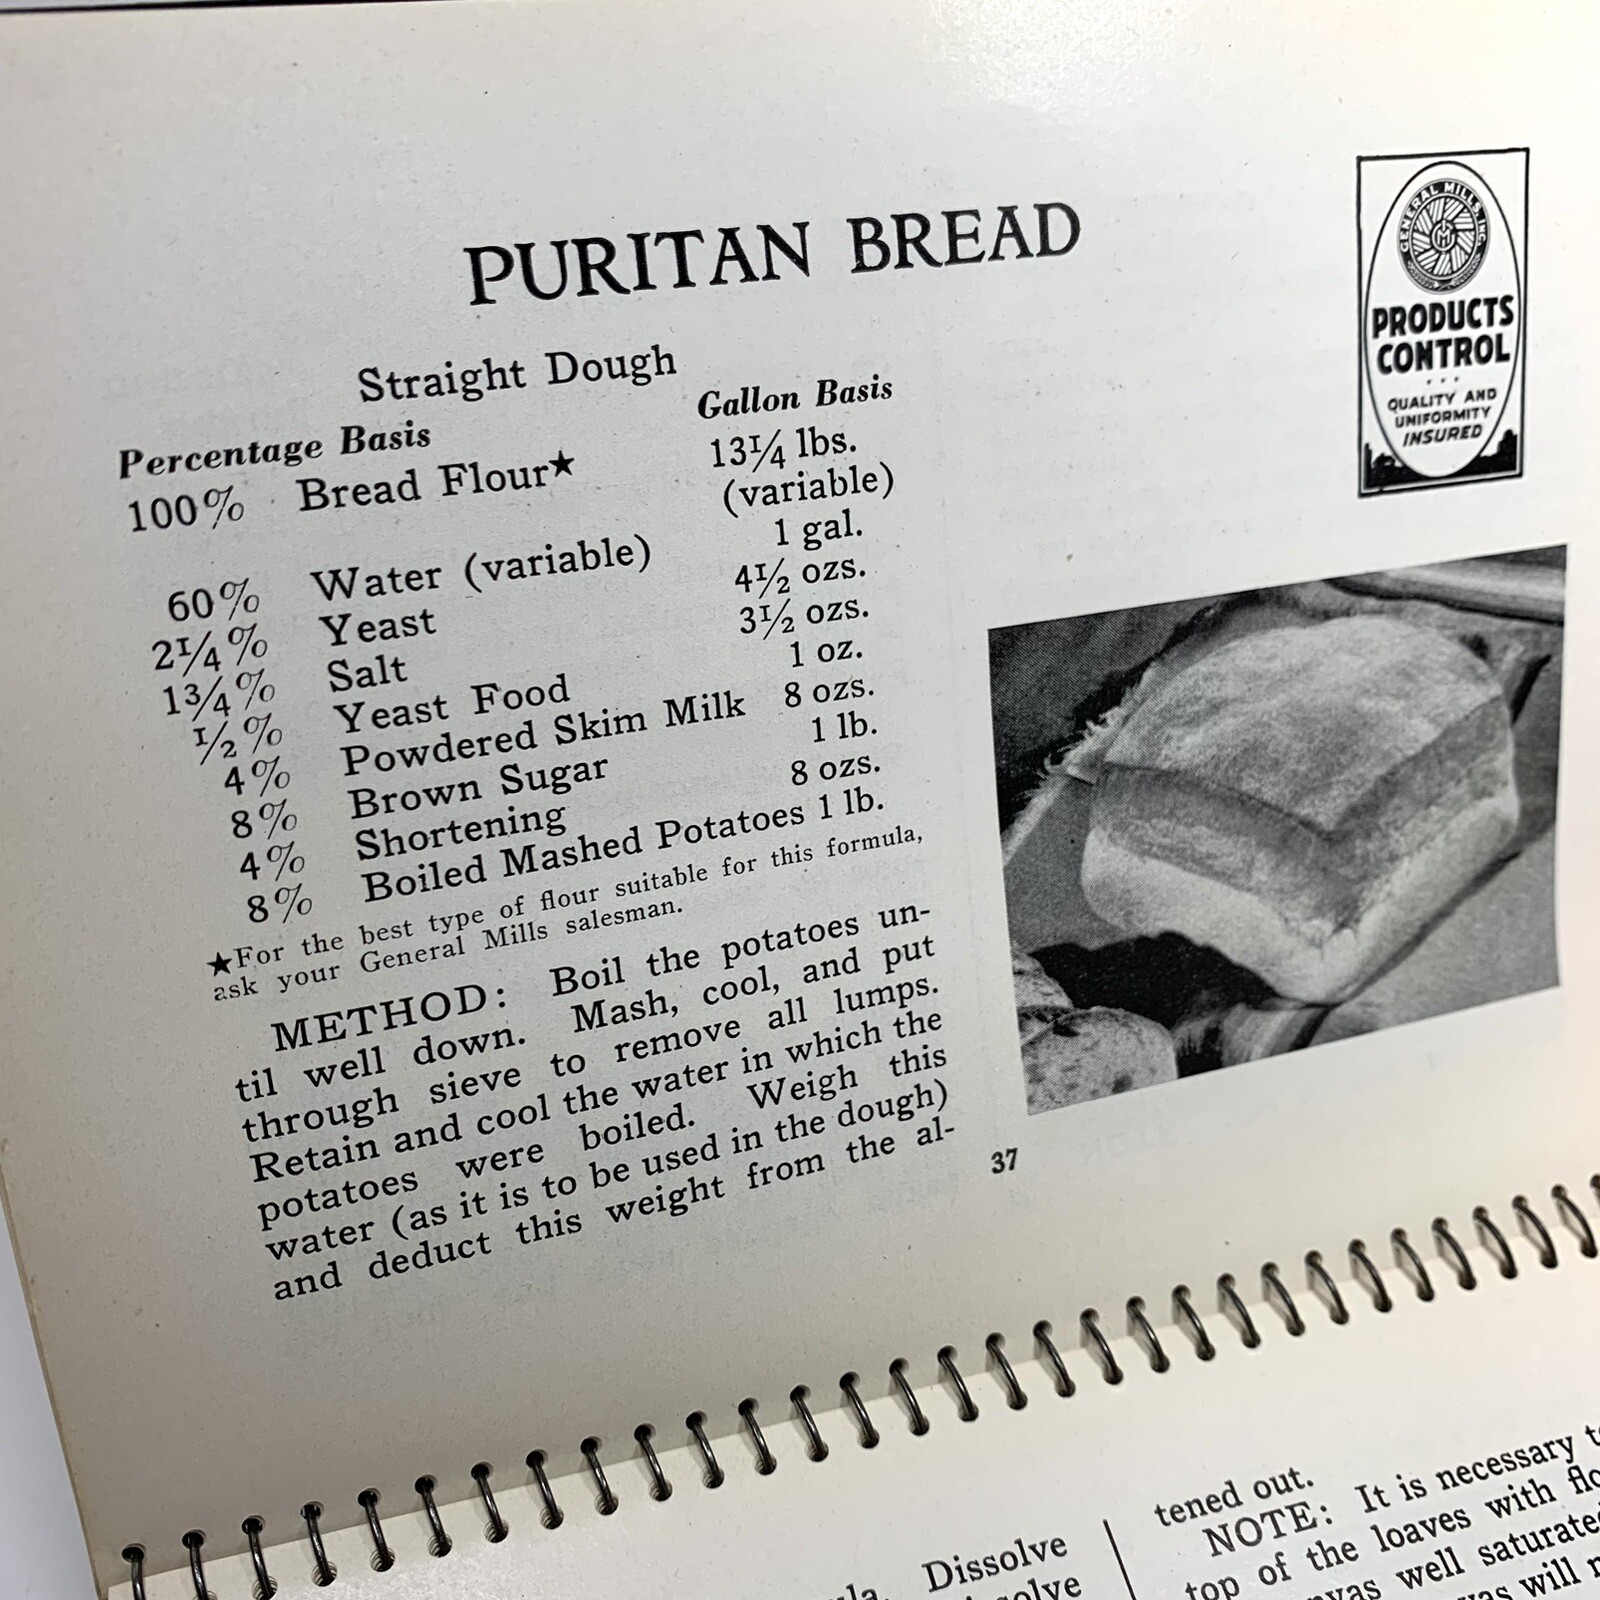 PURITAN BREAD
Straight Dough
Percentage Basis Gallon Basis
100% Bread Flour★ 13¼ lbs.
(variable)
60% Water (variable) 1 gal.
2¼% Yeast 4½ ozs.
1¾% Salt 3½ ozs.
½% Yeast Food 1 oz.
4% Powdered Skim Milk 8 ozs.
8% Brown Sugar 1 lb.
4% Shortening 8 ozs.
8% Boiled Mashed Potatoes 1 lb.
★For the best type of flour suitable for this formula,
ask your General Mills salesman.
METHOD: Boil the potatoes un-
til well down. Mash, cool, and put
through sieve to remove all lumps.
Retain and cool the water in which the
potatoes were boiled. Weigh this
water (as it is to be used in the dough)
and deduct this weight from the al-
GENERAL MILLS, INC.
PRODUCTS
CONTROL
QUALITY AND
UNIFORMITY
INSURED
37
Dissolve
tened out.
NOTE: It is necessary
top of the loaves with
well saturated
will